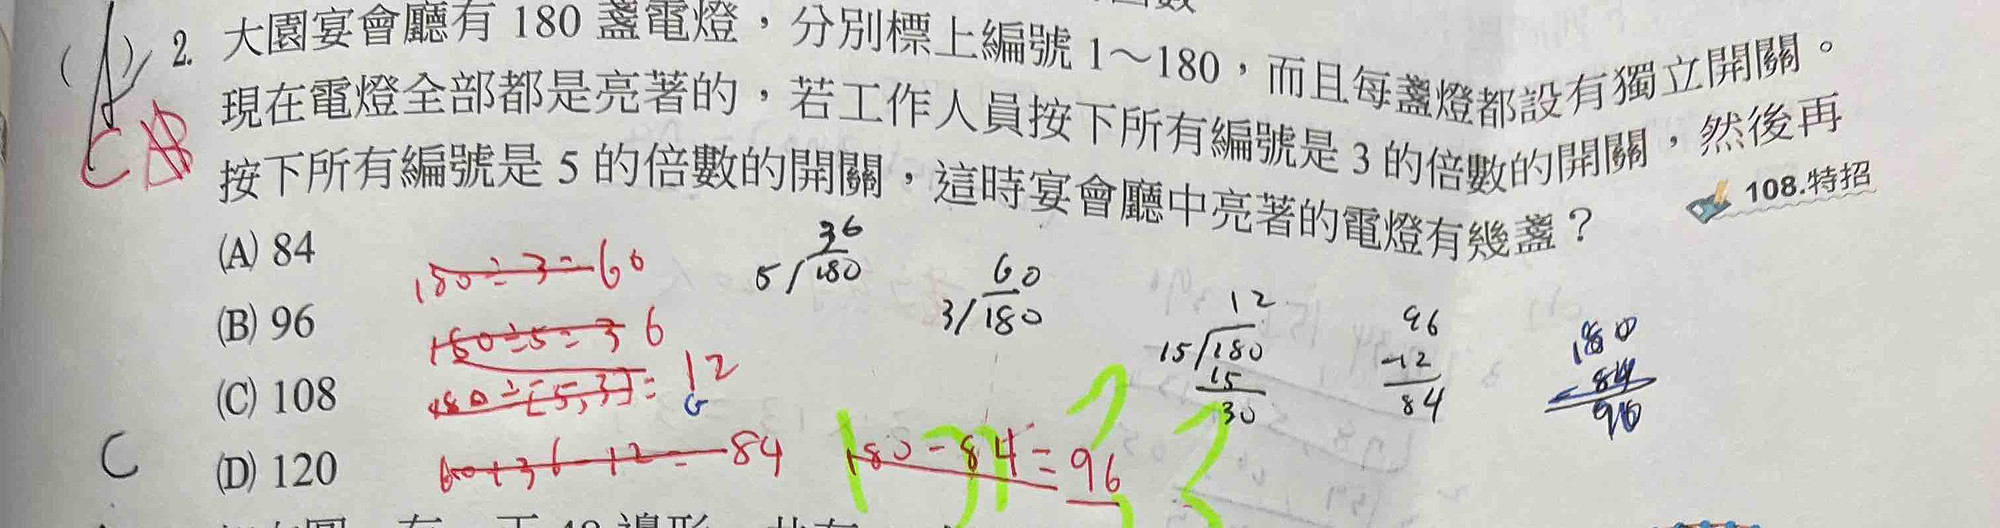 2. 大園宴會廳有 180 盞電燈，分別標上編號 1～180，而且每盞燈都設有獨立開關。
現在電燈全部都是亮著的，若工作人員按下所有編號是 3 的倍數的開關，然後再
按下所有編號是 5 的倍數的開關，這時宴會廳中亮著的電燈有幾盞？
108.特招
(A) 84
(B) 96
(C) 108
(D) 120
C
180÷3=60
180÷5=36
180÷[5,3]=12
60+36-12=84
180-84=96
36
5/180
60
3/180
12
15/180
15
30
96
-12
84
180
84